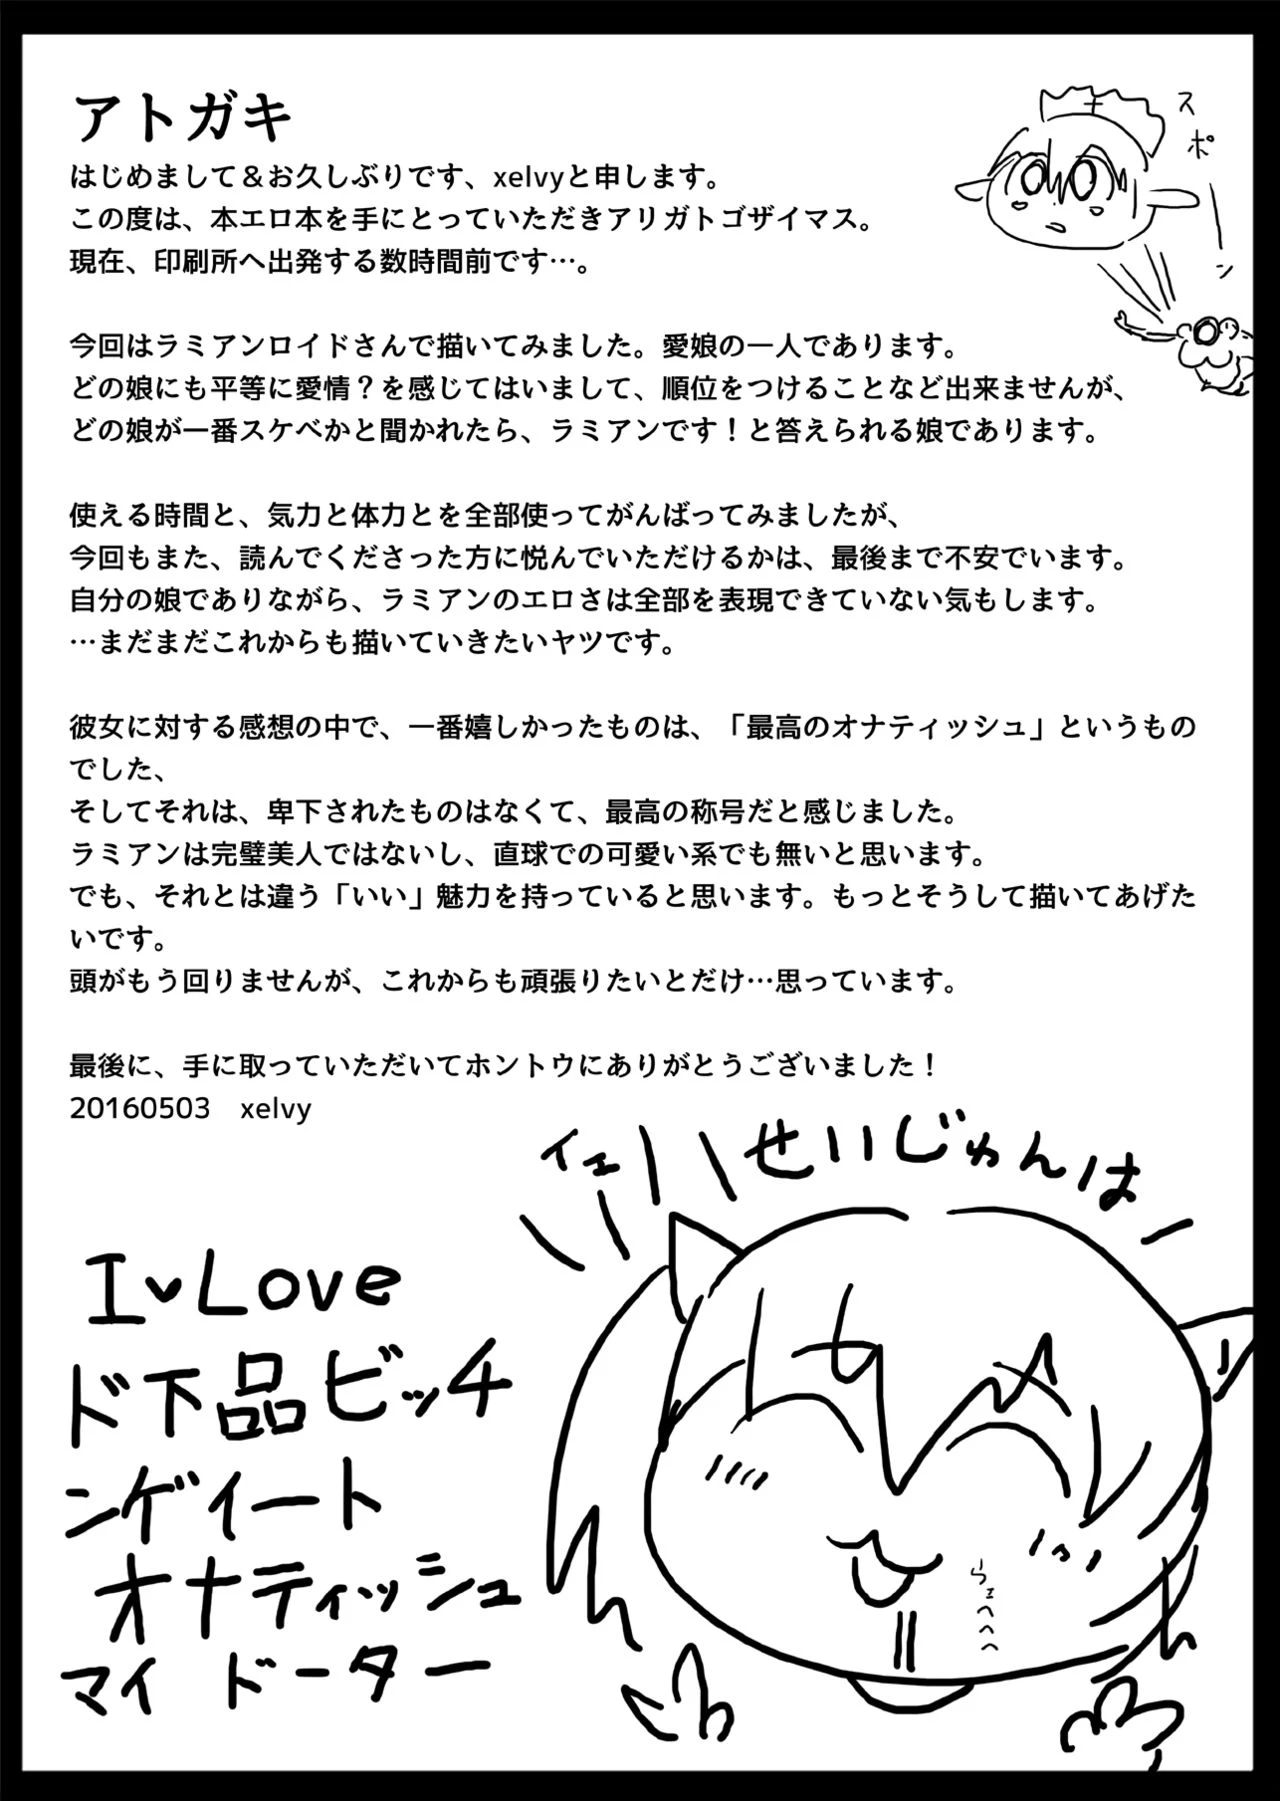 アトガキ
はじめまして＆お久しぶりです、xelvyと申します。
この度は、本エロ本を手にとっていただきアリガトゴザイマス。
現在、印刷所へ出発する数時間前です…。
今回はラミアンロイドさんで描いてみました。愛娘の一人であります。
どの娘にも平等に愛情？を感じてはいまして、順位をつけることなど出来ませんが、
どの娘が一番スケベかと聞かれたら、ラミアンです！と答えられる娘であります。
使える時間と、気力と体力とを全部使ってがんばってみましたが、
今回もまた、読んでくださった方に悦んでいただけるかは、最後まで不安でいます。
自分の娘でありながら、ラミアンのエロさは全部を表現できていない気もします。
…まだまだこれからも描いていきたいヤツです。
彼女に対する感想の中で、一番嬉しかったものは、「最高のオナティッシュ」というもの
でした、
そしてそれは、卑下されたものはなくて、最高の称号だと感じました。
ラミアンは完璧美人ではないし、直球での可愛い系でも無いと思います。
でも、それとは違う「いい」魅力を持っていると思います。もっとそうして描いてあげた
いです。
頭がもう回りませんが、これからも頑張りたいとだけ…思っています。
最後に、手に取っていただいてホントウにありがとうございました！
20160503　xelvy
スポーン
イェー
せいじゅんは
I♥Love
ド下品ビッチ
ンゲィート
オナティッシュ
マイ ドーター
らェへへへ